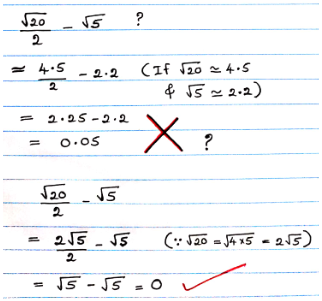 √20/2 - √5 ?
≃ 4.5/2 - 2.2 (If √20 ≃ 4.5
& √5 ≃ 2.2)
= 2.25 - 2.2
= 0.05 ?
√20/2 - √5
= 2√5/2 - √5 (∵ √20 = √4×5 = 2√5)
= √5 - √5 = 0